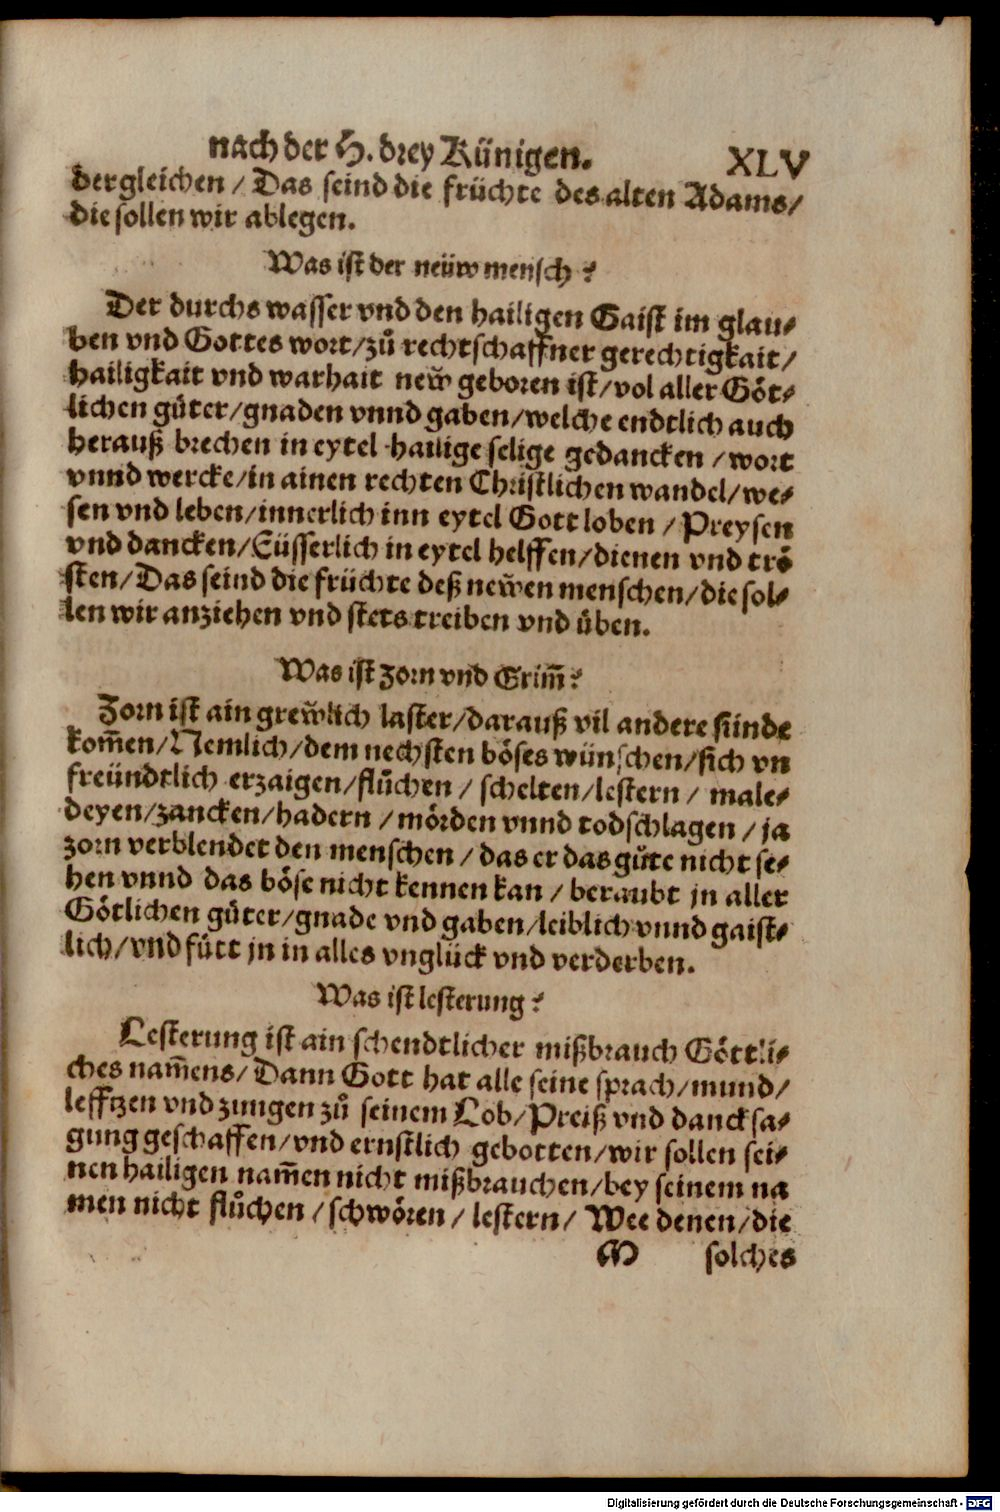 nach der H. drey Künigen. XLV
dergleichen / Das seind die früchte des alten Adams/
die sollen wir ablegen.
Was ist der neüw mensch?
Der durchs wasser vnd den hailigen Gaist im glau-
ben vnd Gottes wort/zů rechtschaffner gerechtigkait/
hailigkait vnd warhait new̃ geboren ist/vol aller Göt-
lichen gůter/gnaden vnnd gaben/welche endtlich auch
herauß brechen in eytel hailige selige gedancken / wort
vnnd wercke/in ainen rechten Christlichen wandel/we-
sen vnd leben/innerlich inn eytel Gott loben / Preysen
vnd dancken/Eüsserlich in eytel helffen/dienen vnd trö
sten/Das seind die früchte deß new̃en menschen/die sol-
len wir anziehen vnd stets treiben vnd üben.
Was ist zorn vnd Grim̃?
Zorn ist ain grew̃lich laster/darauß vil andere sünde
kom̃en/Nemlich/dem nechsten böses wünschen/sich vn
freündtlich erzaigen/flůchen / schelten/lestern / male-
deyen/zancken/hadern / mörden vnnd todschlagen / ja
zorn verblendet den menschen / das er das gůte nicht se-
hen vnnd das böse nicht kennen kan / beraubt jn aller
Götlichen gůter/gnade vnd gaben/leiblich vnnd gaist-
lich/vnd fürt jn in alles vnglück vnd verderben.
Was ist lesterung?
Lesterung ist ain schendtlicher mißbrauch Göttli-
ches nam̃ens/Dann Gott hat alle seine sprach/mund/
lefftzen vnd zungen zů seinem Lob/Preiß vnd dancksa-
gung geschaffen/vnd ernstlich gebotten/wir sollen sei-
nen hailigen nam̃en nicht mißbrauchen/bey seinem na
men nicht flůchen / schwören / lestern/ Wee denen/die
M solches
Digitalisierung gefördert durch die Deutsche Forschungsgemeinschaft - DFG